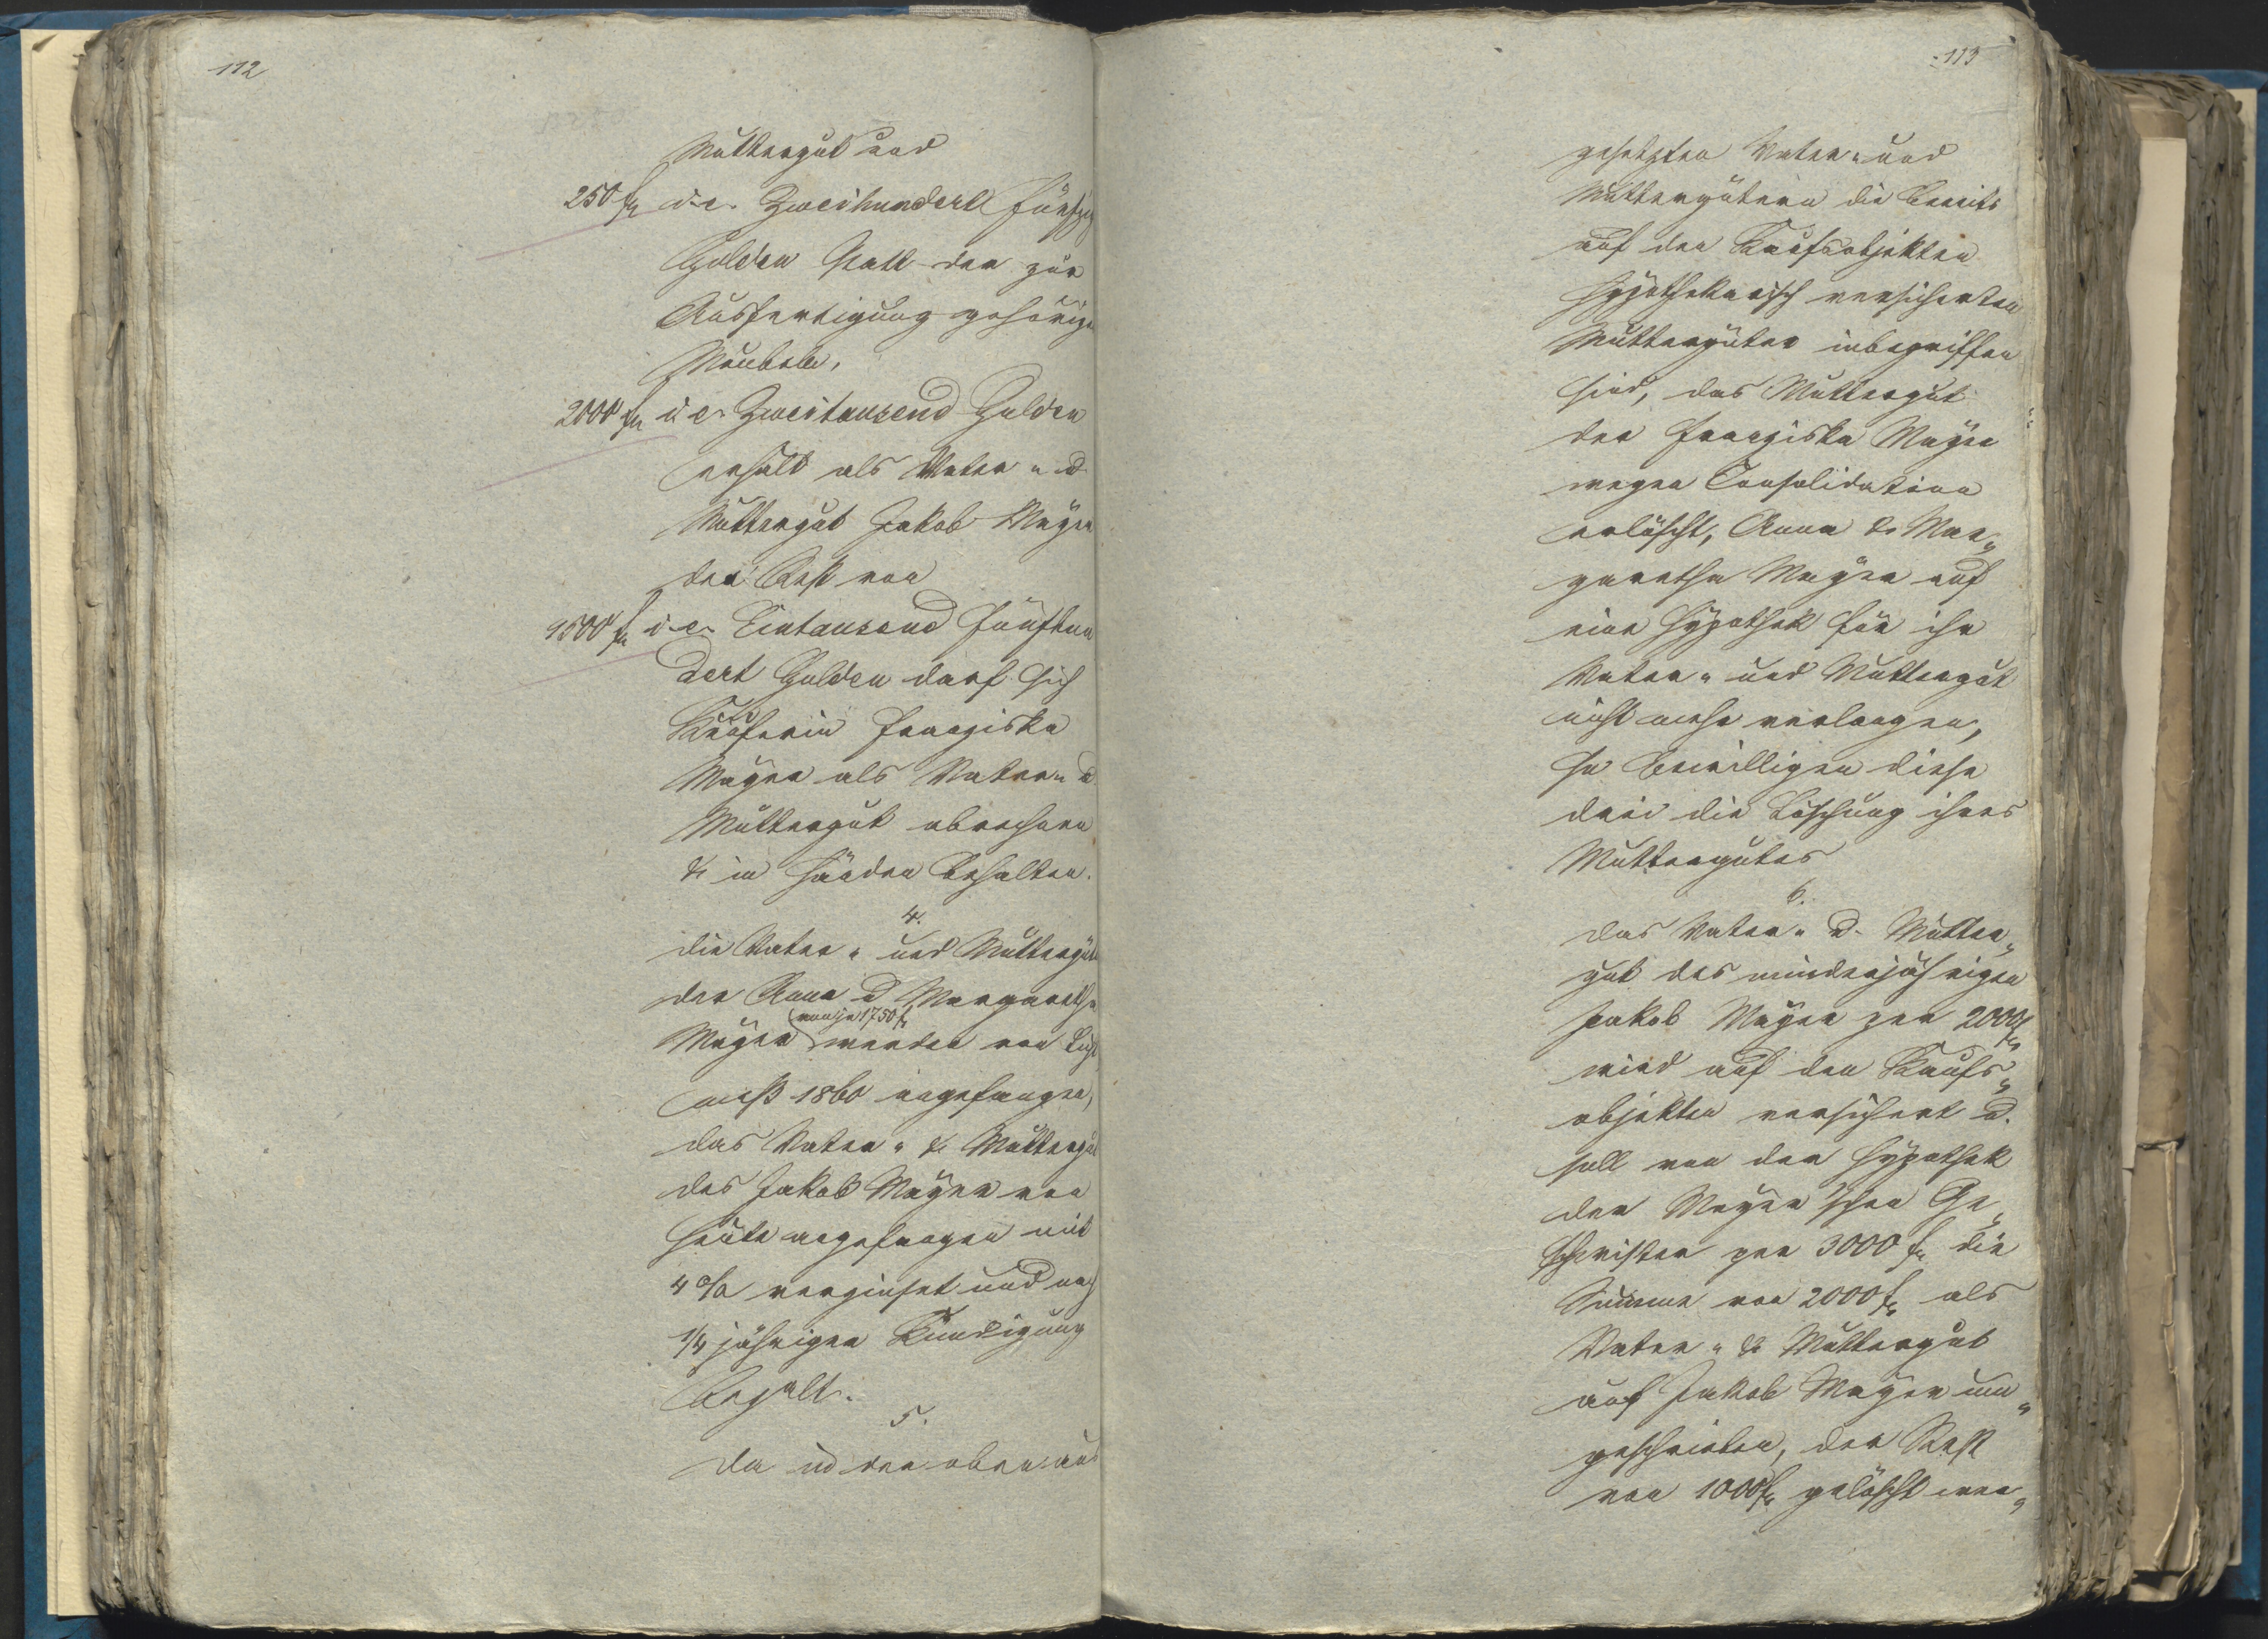 112
Muttergut und
250 fl i. e. Zweihundert fünfzig
Gulden statt der zur
Ausfertigung gehörigen
Meubels,
2000 fl i. e. Zweitausend Gulden
erhält als Vater u.
Muttergut Jakob Mayer
den Rest von
1500 fl i. e. Eintausend Fünfhun
dert Gulden darf sich
Käuferin Franziska
Mayer als Vater u
Muttergut abrechnen
& in Händen behalten.
4.
Die Vater- und Muttergüter
der Anna u Margaretha
von je 1750 fl
Mayer werden von Licht
meß 1860 angefangen,
das Vater- & Muttergut
des Jakob Mayer von
heute angefangen mit
4 % verzinset und nach
1/4 jähriger Kündigung
bezalt.
5.
Da in den oben aus
113
gesetzten Vater- und
Muttergütern die bereits
auf den Kaufsobjekten
hypothekarisch versicherten
Muttergüter inbegriffen
sind, das Muttergut
der Franziska Mayer
wegen Consolidation
erlöscht, Anna & Mar-
garetha Mayer auf
eine Hypothek für ihr
Vater- und Muttergut
nicht mehr verlangen,
so bewilligen diese
drei die Löschung ihres
Muttergutes
6.
Das Vater- u. Mutter-
gut des minderjährigen
Jakob Mayer per 2000 fl
wird auf den Kaufs-
objekten versichert u.
soll von der Hypothek
der Mayer'schen Ge-
schwister per 3000 fl die
Summe von 2000 fl als
Vater- & Muttergut
auf Jakob Mayer um-
geschrieben, der Rest
von 1000 fl gelöscht wer-